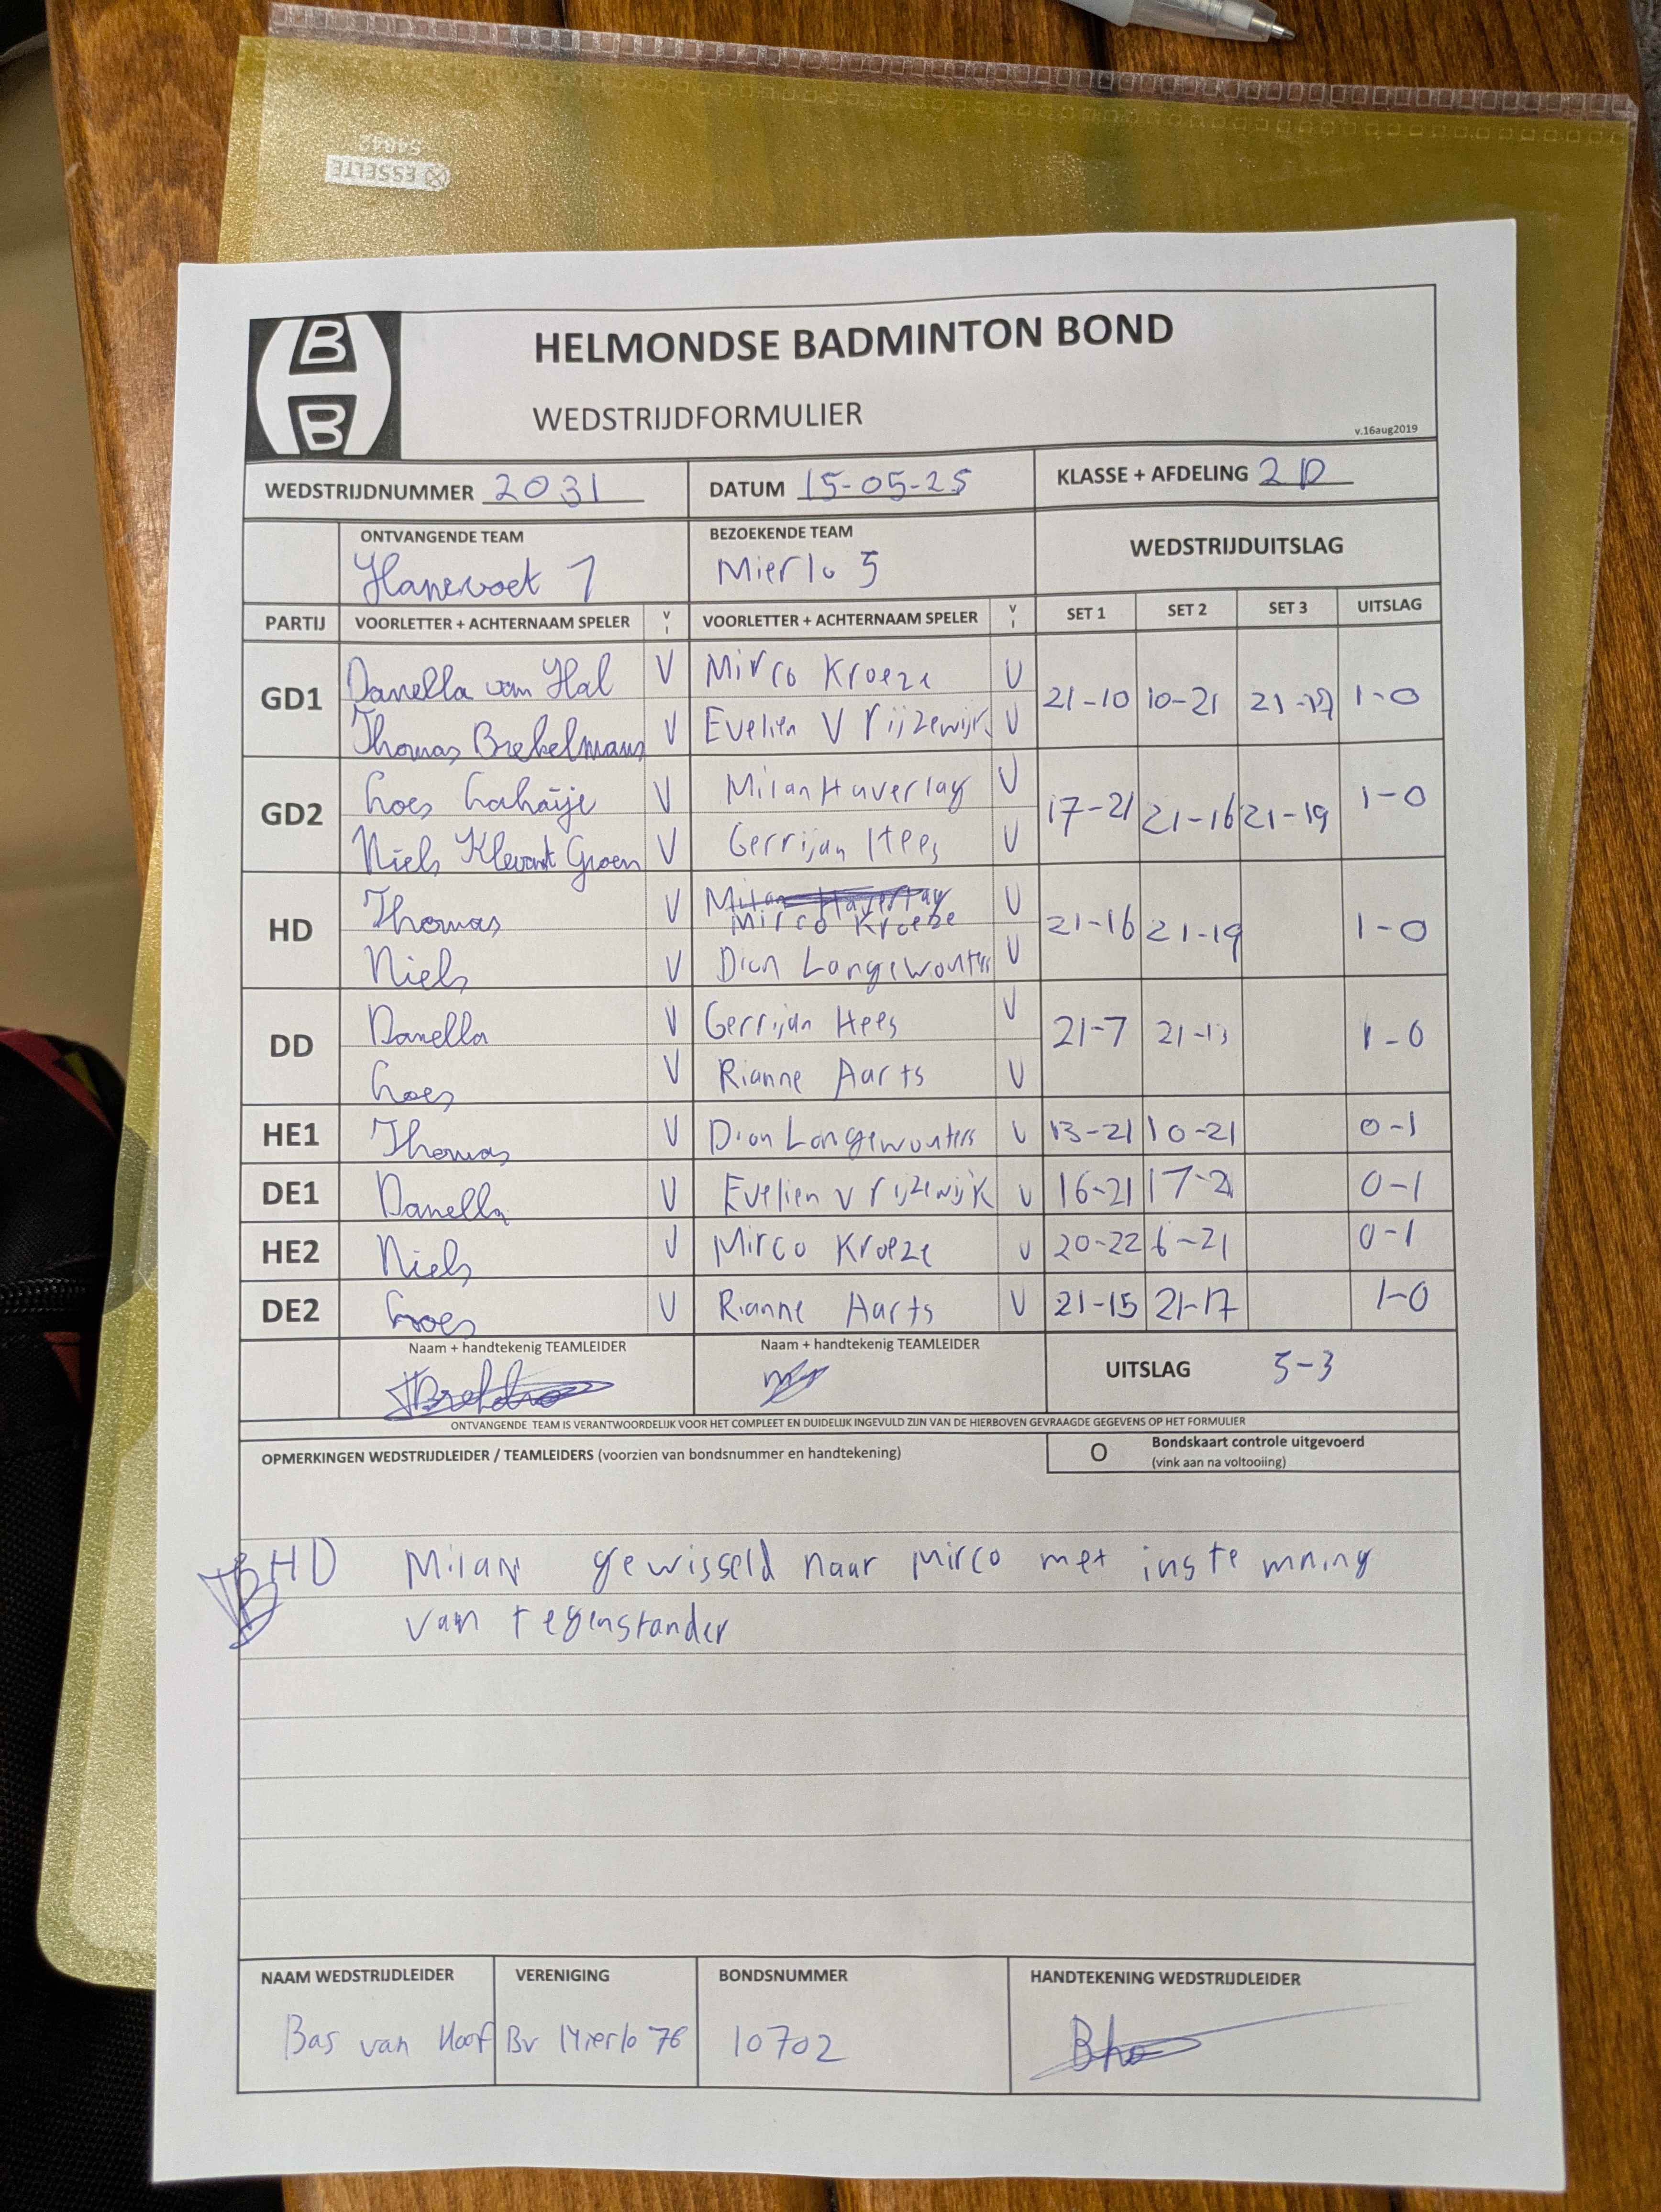 ESSELTE
54842
HELMONDSE BADMINTON BOND
WEDSTRIJDFORMULIER
v.16aug2019
WEDSTRIJDNUMMER 2031 DATUM 15-05-25 KLASSE + AFDELING 2D
ONTVANGENDE TEAM BEZOEKENDE TEAM WEDSTRIJDUITSLAG
Hanevoet 1 Mierlo 5
PARTIJ VOORLETTER + ACHTERNAAM SPELER V I VOORLETTER + ACHTERNAAM SPELER V I SET 1 SET 2 SET 3 UITSLAG
Danella van Hal V Mirco Kroeze V
GD1 21-10 10-21 21-19 1-0
Thomas Brekelmans V Evelien v Rijzewijk V
Loes Lahaije V Milan Haverlag V
GD2 17-21 21-16 21-19 1-0
Niels Klevant Groen V Gerrijan Hees V
Thomas V Mirco Kroeze V
HD 21-16 21-19 1-0
Niels V Dion Langewouters V
Danella V Gerrijan Hees V
DD 21-7 21-13 1-0
Loes V Rianne Aarts V
HE1 Thomas V Dion Langewouters V 13-21 10-21 0-1
DE1 Danella V Evelien v Rijzewijk V 16-21 17-21 0-1
HE2 Niels V Mirco Kroeze V 20-22 6-21 0-1
DE2 Loes V Rianne Aarts V 21-15 21-17 1-0
Naam + handtekenig TEAMLEIDER Naam + handtekenig TEAMLEIDER
UITSLAG 5-3
ONTVANGENDE TEAM IS VERANTWOORDELIJK VOOR HET COMPLEET EN DUIDELIJK INGEVULD ZIJN VAN DE HIERBOVEN GEVRAAGDE GEGEVENS OP HET FORMULIER
OPMERKINGEN WEDSTRIJDLEIDER / TEAMLEIDERS (voorzien van bondsnummer en handtekening) O Bondskaart controle uitgevoerd
(vink aan na voltooiing)
HD Milan gewisseld naar Mirco met instemming
van tegenstander
NAAM WEDSTRIJDLEIDER VERENIGING BONDSNUMMER HANDTEKENING WEDSTRIJDLEIDER
Bas van Hoof Bv Mierlo 76 10702